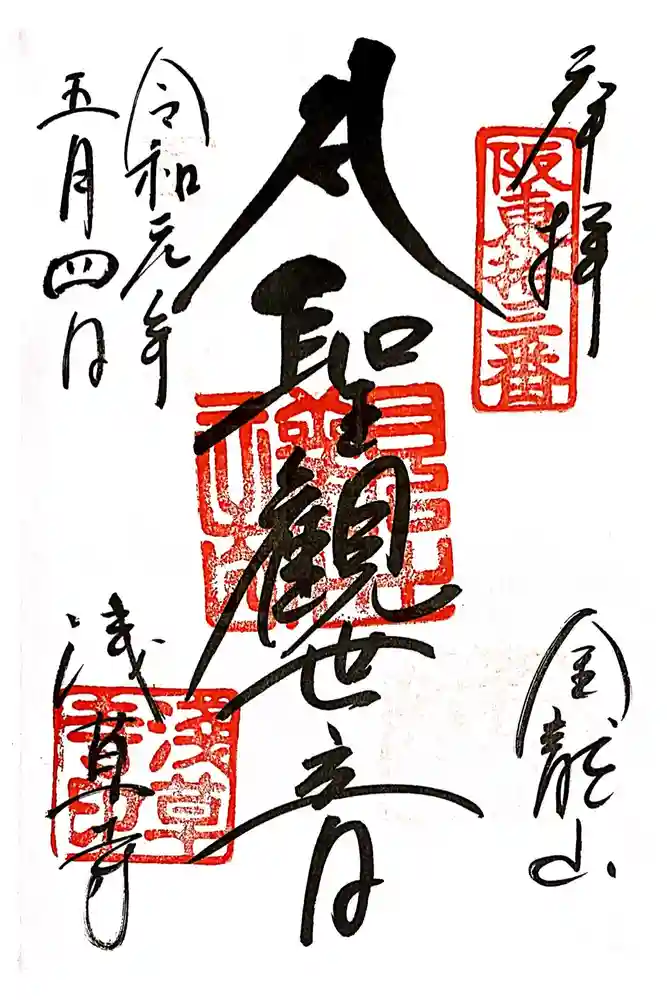 奉拝
阪東拾三番
金龍山
聖觀世音
令和元年
五月四日
浅草寺
淺草
寺印